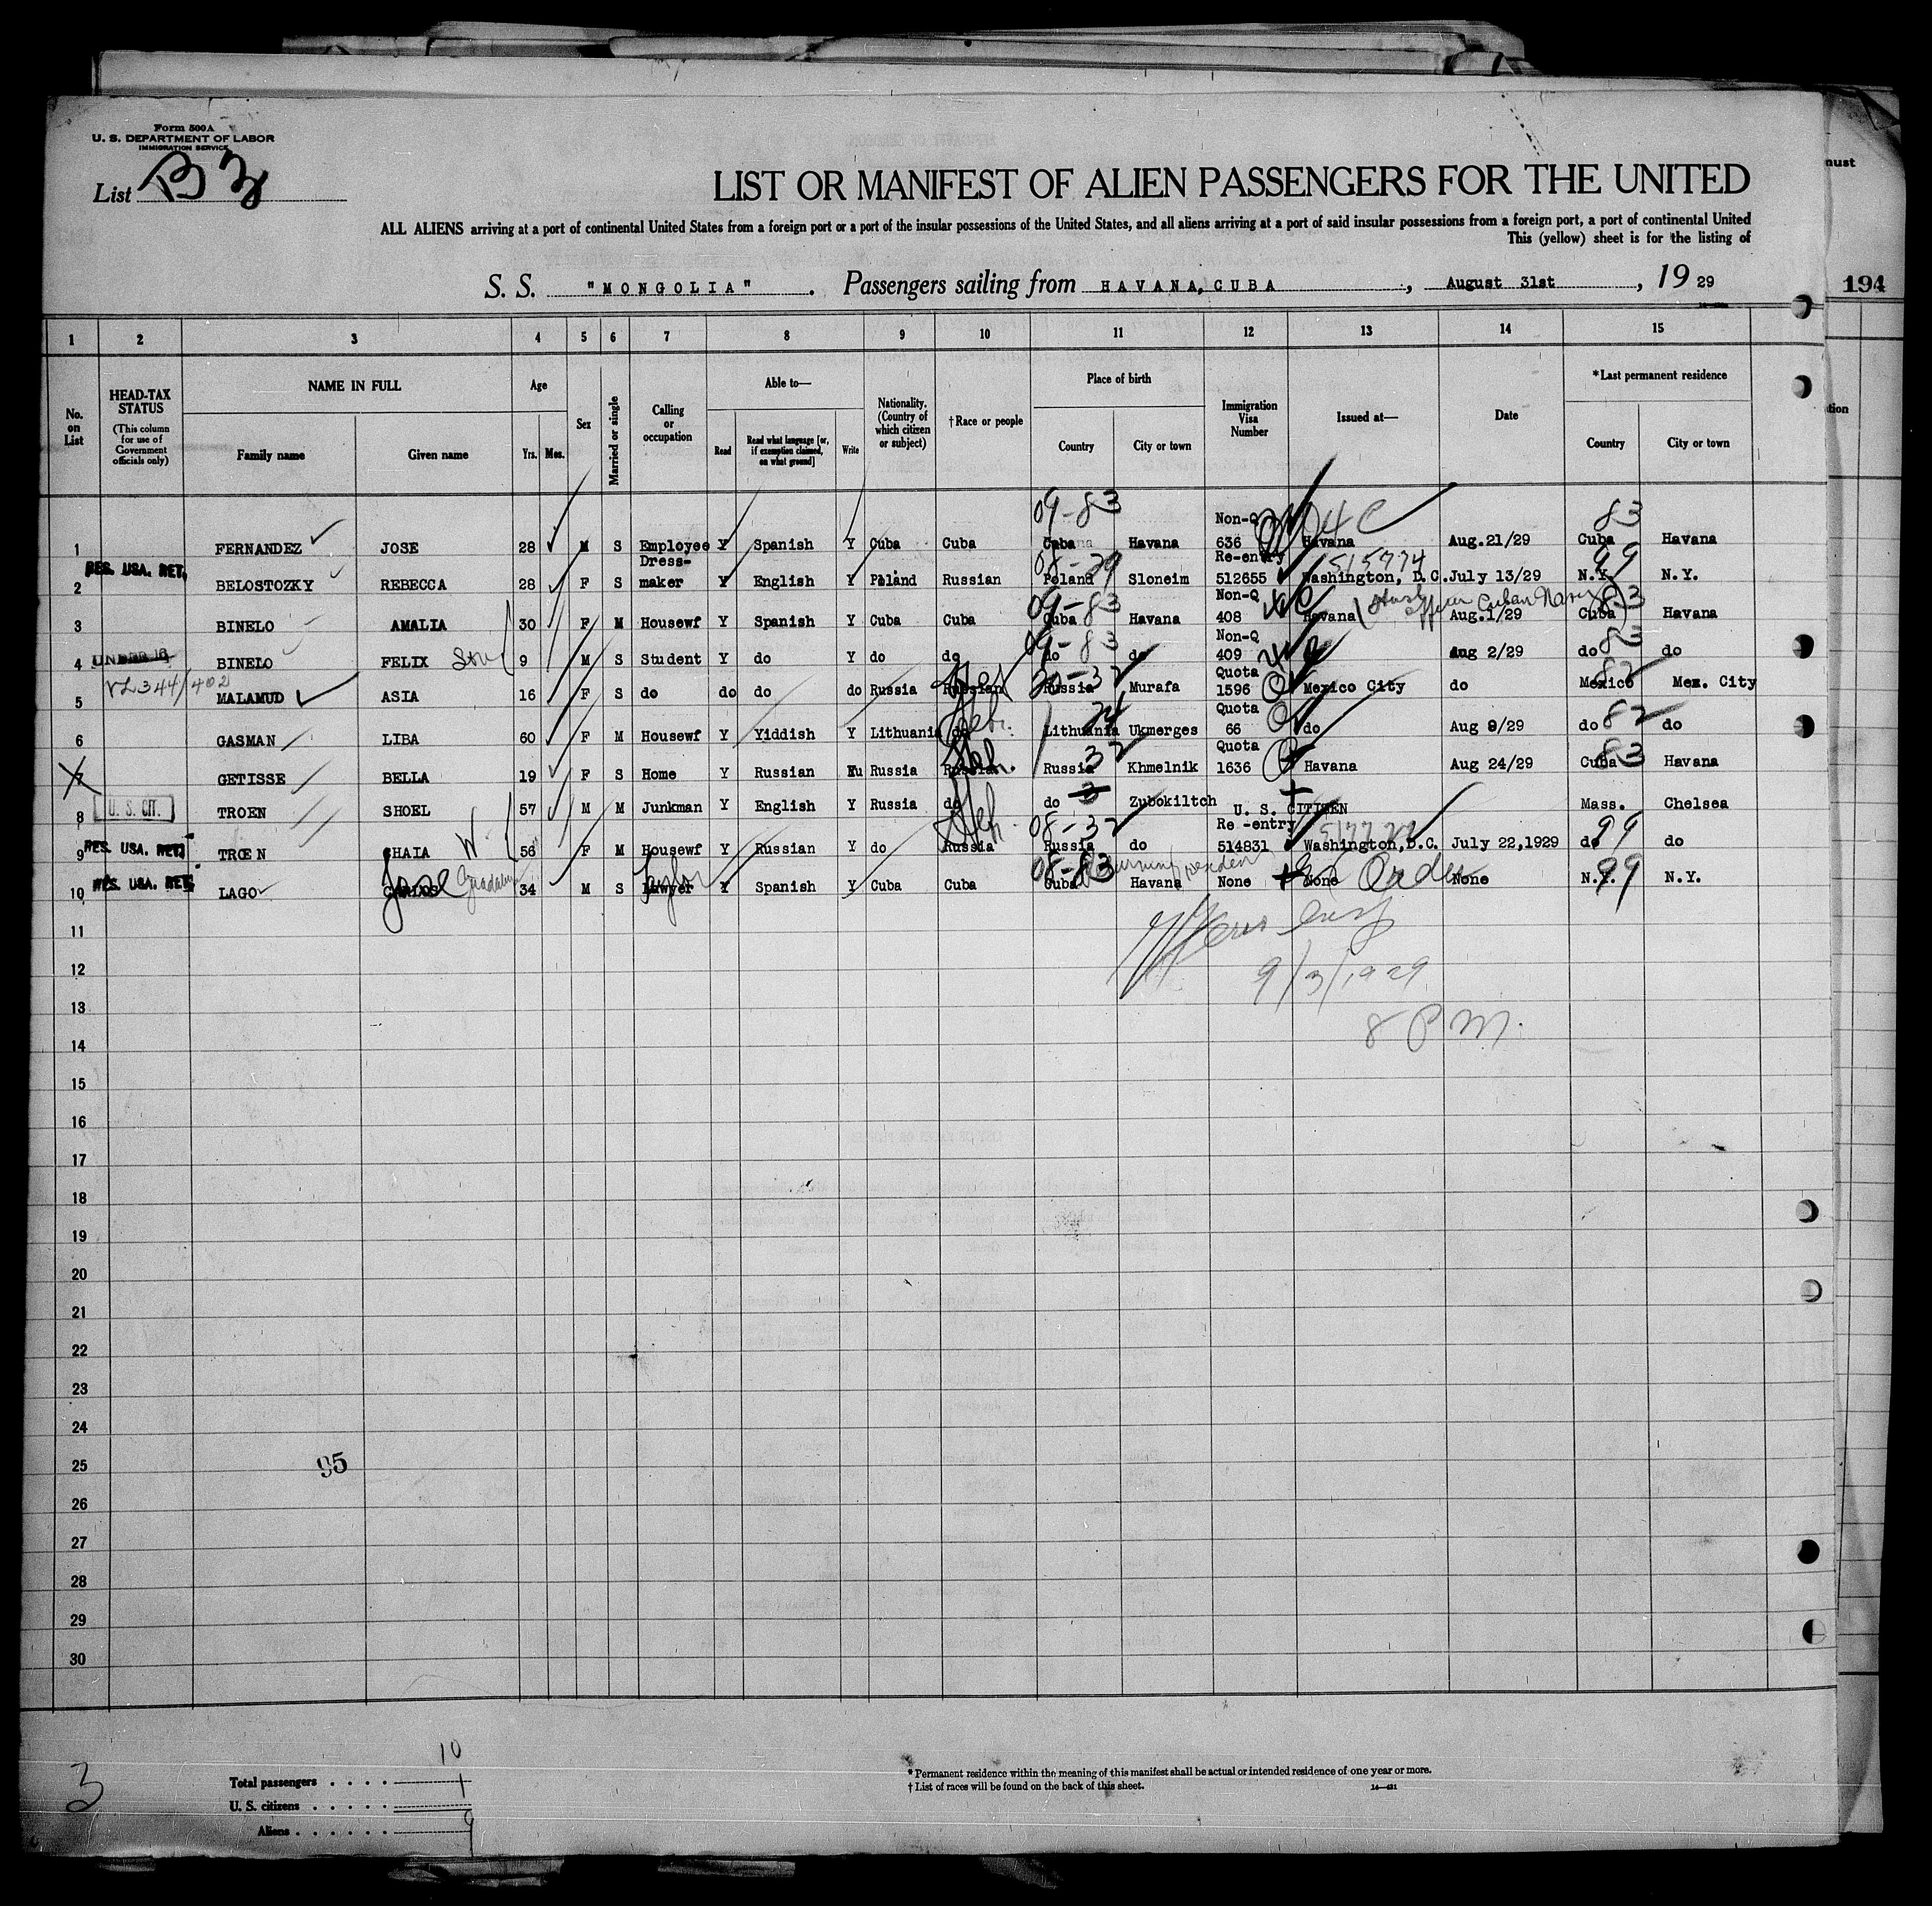 Form 500A
U. S. DEPARTMENT OF LABOR
IMMIGRATION SERVICE
List B
LIST OR MANIFEST OF ALIEN PASSENGERS FOR THE UNITED
ALL ALIENS arriving at a port of continental United States from a foreign port or a part of the insular possessions of the United States, and all aliens arriving at a port of said insular possessions from a foreign port, a port of continental United
This (yellow) sheet is for the listing of
S. S. "MONGOLIA". Passengers sailing from HAVANA, CUBA, August 31st, 19 29
194
1 2 3 4 5 6 7 8 9 10 11 12 13 14 15
No. on List
HEAD-TAX STATUS
(This column for use of Government officials only)
NAME IN FULL
Family name
Given name
Age
Yrs. Mos.
Sex
Married or single
Calling or occupation
Able to—
Read
Read what language [or, if exemption claimed, on what ground]
Write
Nationality. (Country of which citizen or subject)
†Race or people
Place of birth
Country
City or town
Immigration Visa Number
Issued at—
Date
*Last permanent residence
Country
City or town
09-83 Non-Q 04 C 83
1 FERNANDEZ JOSE 28 M S Employee Y Spanish Y Cuba Cuba Cuba Havana 636 Havana Aug.21/29 Cuba Havana
RES. USA. RET. Dress- 08-29 Re-entry 515774 99
2 BELOSTOZKY REBECCA 28 F S maker Y English Y Poland Russian Poland Sloneim 512655 Washington, D.C. July 13/29 N.Y. N.Y.
09-83 Non-Q officer Cuban Navy 83
3 BINELO AMALIA 30 F M Housewf Y Spanish Y Cuba Cuba Cuba Havana 408 Havana Aug.1/29 Cuba Havana
UNDER 16 09-83 Non-Q 83
4 BINELO FELIX Son 9 M S Student Y do Y do do do do 409 Aug 2/29 do do
VL344/402 Quota 82
5 MALAMUD ASIA 16 F S do do do do Russia Russian Russia Murafa 1596 Mexico City do Mexico Mex. City
Heb. Quota 82
6 GASMAN LIBA 60 F M Housewf Y Yiddish Y Lithuania do Lithuania Ukmerges 66 do Aug 8/29 do do
Heb. 32 Quota 83
7 GETISSE BELLA 19 F S Home Y Russian Russia Russian Russia Khmelnik 1636 Havana Aug 24/29 Cuba Havana
U. S. CIT.
8 TROEN SHOEL 57 M M Junkman Y English Y Russia do do Zubokiltch U. S. CITIZEN Mass. Chelsea
RES. USA. RET. W Heb. 08-32 Re-entry 99
9 TROEN CHAIA 56 F M Housewf Y Russian Y do Russia Russia do 514831 Washington, D.C. July 22,1929 do do
RES. USA. RET. Jose 08-83 99
10 LAGO CARLOS 34 M S Lawyer Y Spanish Y Cuba Cuba Cuba Havana None None None N.Y. N.Y.
11
12 9/3/1929
13
14 8 P M.
15
16
17
18
19
20
21
22
23
24
25 95
26
27
28
29
30
3
Total passengers . . . . 10
U. S. citizens . . . . . 1
Aliens . . . . . . 9
* Permanent residence within the meaning of this manifest shall be actual or intended residence of one year or more.
† List of races will be found on the back of this sheet.